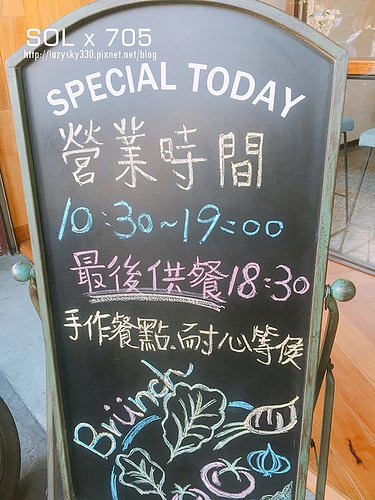 SOL x 705
http://lazysky330.pixnet.net/blog
SPECIAL TODAY
營業時間
10:30~19:00
最後供餐18:30
手作餐點.耐心等候
Brünch